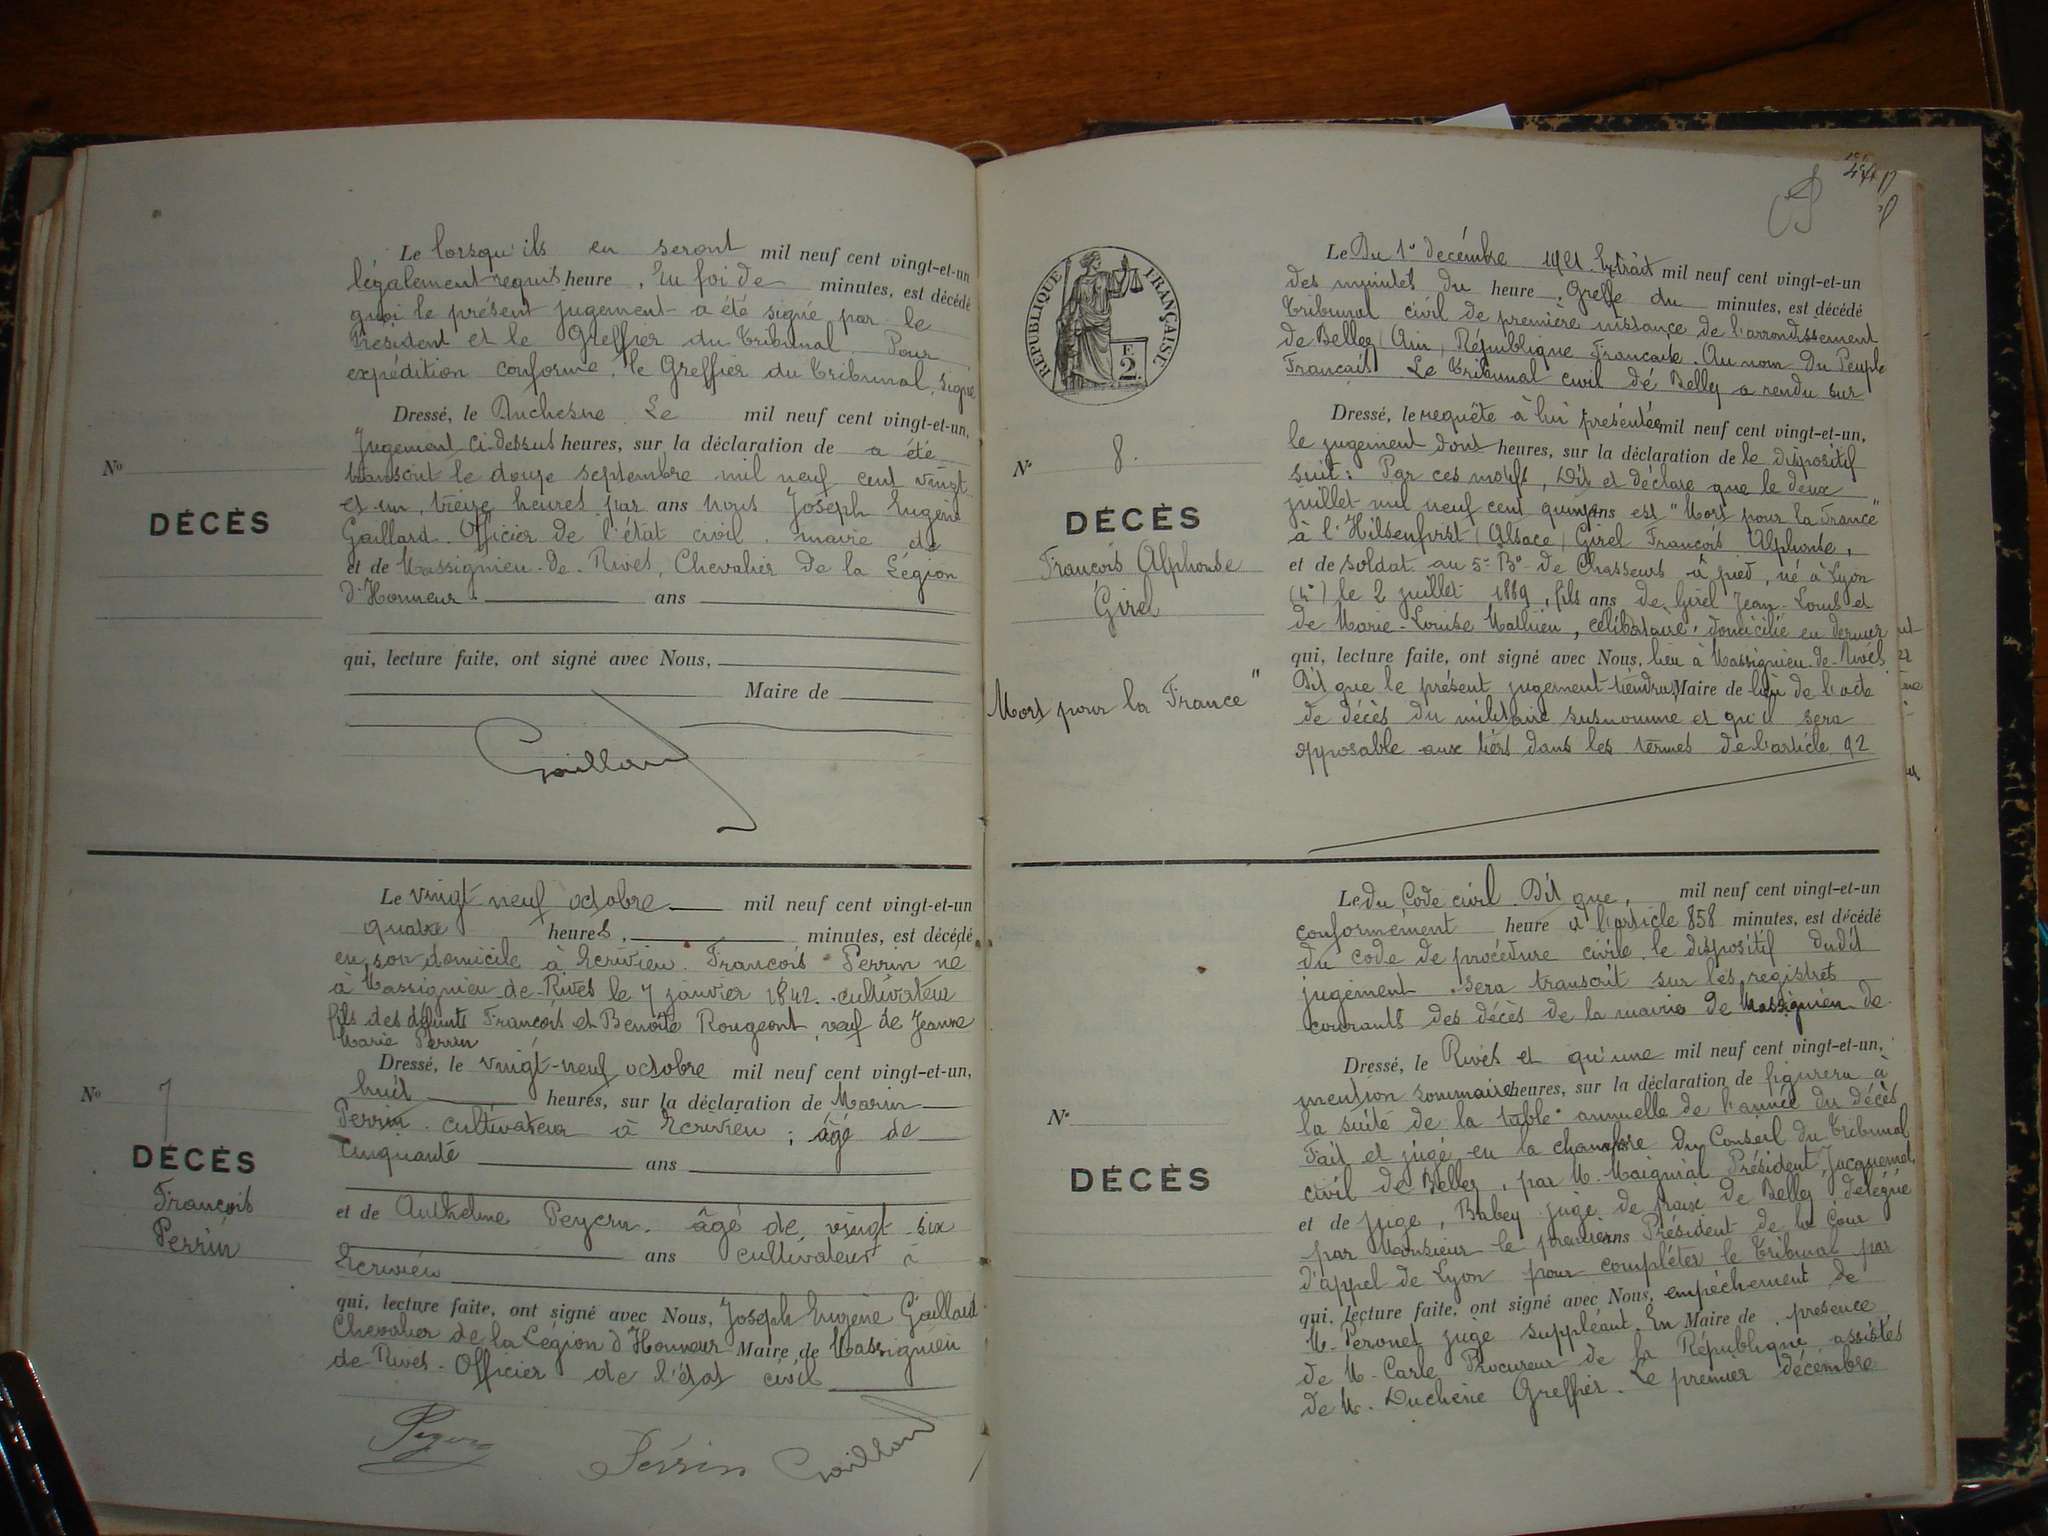 Le lorsqu'ils en seront mil neuf cent vingt-et-un
légalement requis heure, En foi de minutes, est décédé
quoi le présent jugement a été signé par le
Président et le Greffier du Tribunal. Pour
expédition conforme, le Greffier du Tribunal, signé
Dressé, le Duchesne Le mil neuf cent vingt-et-un,
Jugement ci-dessus heures, sur la déclaration de a été
transcrit le douze septembre mil neuf cent vingt
et un, treize heures par ans nous Joseph Eugène
Gaillard Officier de l'état civil. maire de
et de Massignieu-de-Rives, Chevalier de la Légion
d'Honneur ans
qui, lecture faite, ont signé avec Nous,
Maire de
Gaillard
No
DÉCÈS
Le vingt neuf octobre mil neuf cent vingt-et-un
quatre heures, minutes, est décédé
en son domicile à Ecrivieu. François Perrin né
à Massignieu-de-Rives le 7 janvier 1842. cultivateur
fils des défunts François et Benoite Rougeont, veuf de Jeanne
Marie Perrin
Dressé, le vingt-neuf octobre mil neuf cent vingt-et-un,
huit heures, sur la déclaration de Marin
Perrin cultivateur à Ecrivieu; âgé de
Cinquante ans
et de Anthelme Peycru. âgé de vingt six
ans cultivateur à
Ecrivieu
qui, lecture faite, ont signé avec Nous, Joseph Eugène Gaillard
Chevalier de la Légion d'Honneur Maire de Massignieu
de-Rives. Officier de l'état civil
Perrin Gaillard
No 7
DÉCÈS
François
Perrin
RÉPUBLIQUE FRANÇAISE
E.
2
Le Du 1er décembre 1921. Extrait mil neuf cent vingt-et-un
des minutes du heure, Greffe du minutes, est décédé
Tribunal civil de première instance de l'arrondissement
de Belley (Ain) République Française. Au nom du Peuple
Français. Le Tribunal civil de Belley a rendu sur
Dressé, le requête à lui présentée mil neuf cent vingt-et-un,
le jugement dont heures, sur la déclaration de le dispositif
suit: Par ces motifs, Dit et déclare que le deux
juillet mil neuf cent quinze ans est "Mort pour la France"
à l'Hilsenfirst (Alsace) Girel François Alphonse,
et de soldat au 5e Bon de Chasseurs à pied, né à Lyon
(4e) le 2 juillet 1889, fils ans de Girel Jean-Louis et
de Marie-Louise Mathieu, célibataire, domicilié en dernier
qui, lecture faite, ont signé avec Nous, lieu à Massignieu-de-Rives.
Dit que le présent jugement tiendra Maire de lieu de l'acte
de décès du militaire susnommé et qu'il sera
opposable aux tiers dans les termes de l'article 92
No 8.
DÉCÈS
François Alphonse
Girel
Mort pour la France"
Le du Code civil. Dit que, mil neuf cent vingt-et-un
conformément heure à l'article 858 minutes, est décédé
du code de procédure civile. le dispositif dudit
jugement sera transcrit sur les registres
courants des décès de la mairie de Massignieu-de
Dressé, le Rives et qu'une mil neuf cent vingt-et-un,
mention sommaire heures, sur la déclaration de figurera à
la suite de la table annuelle de l'année du décès
Fait et jugé en la chambre du Conseil du tribunal
civil de Belley, par M. Maignial Président, Jacquemet,
et de juge, Babey juge de paix de Belley délégué
par Monsieur le premier ans Président de la Cour
d'appel de Lyon pour compléter le Tribunal par
qui, lecture faite, ont signé avec Nous, empêchement de
M. Peronet juge suppléant. En Maire de présence
de M. Carle Procureur de la République assistés
de M. Duchesne Greffier. Le premier décembre
No
DÉCÈS